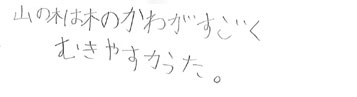 山の木は木のかわがすごく
むきやすかった。